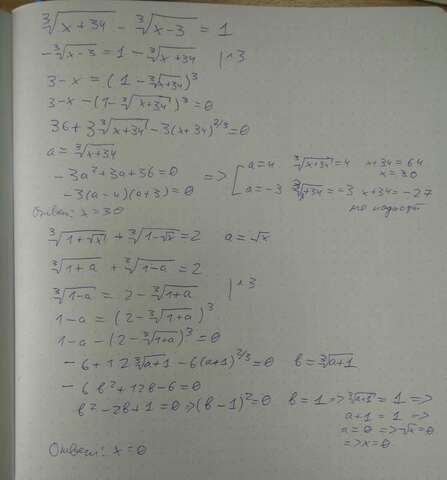 ∛(x+34) - ∛(x-3) = 1
-∛(x-3) = 1 - ∛(x+34) |^3
3-x = (1 - ∛(x+34))^3
3-x-(1-∛(x+34))^3=0
36+3∛(x+34) - 3(x+34)^2/3=0
a = ∛(x+34)
-3a²+3a+36=0 => [ a=4 ∛(x+34)=4 x+34=64 x=30
-3(a-4)(a+3)=0 a=-3 ∛(x+34)=-3 x+34=-27
Ответ: x=30
∛(1+√x) + ∛(1-√x)=2 a=√x
∛(1+a) + ∛(1-a) = 2
∛(1-a) = 2 - ∛(1+a) |^3
1-a = (2-∛(1+a))^3
1-a-(2-∛(1+a))^3=0
-6+12∛(a+1) -6(a+1)^2/3=0 b=∛(a+1)
-6b²+12b-6=0
b²-2b+1=0=>(b-1)²=0 b=1=>∛(a+1)=1=>
a+1=1 =>
a=0 =>√x=0
=>x=0
Ответ: x=0